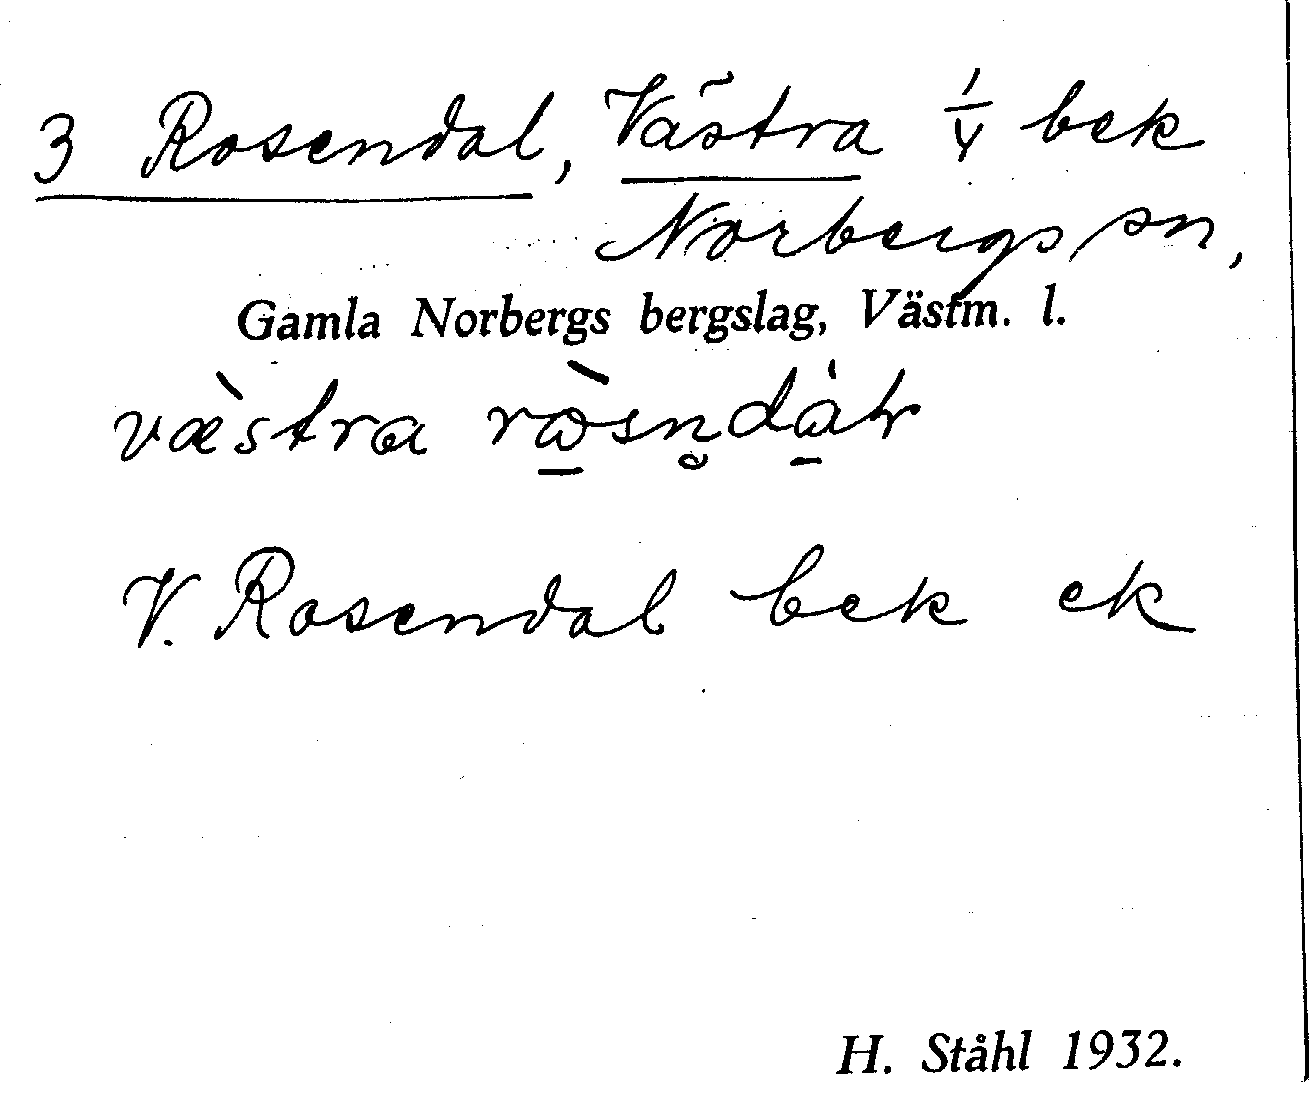 3 Rosendal, Västra 1/4 bek
Norbergs sn,
Gamla Norbergs bergslag, Västm. l.
væ̀stra
V. Rosendal bek ek
H. Ståhl 1932.